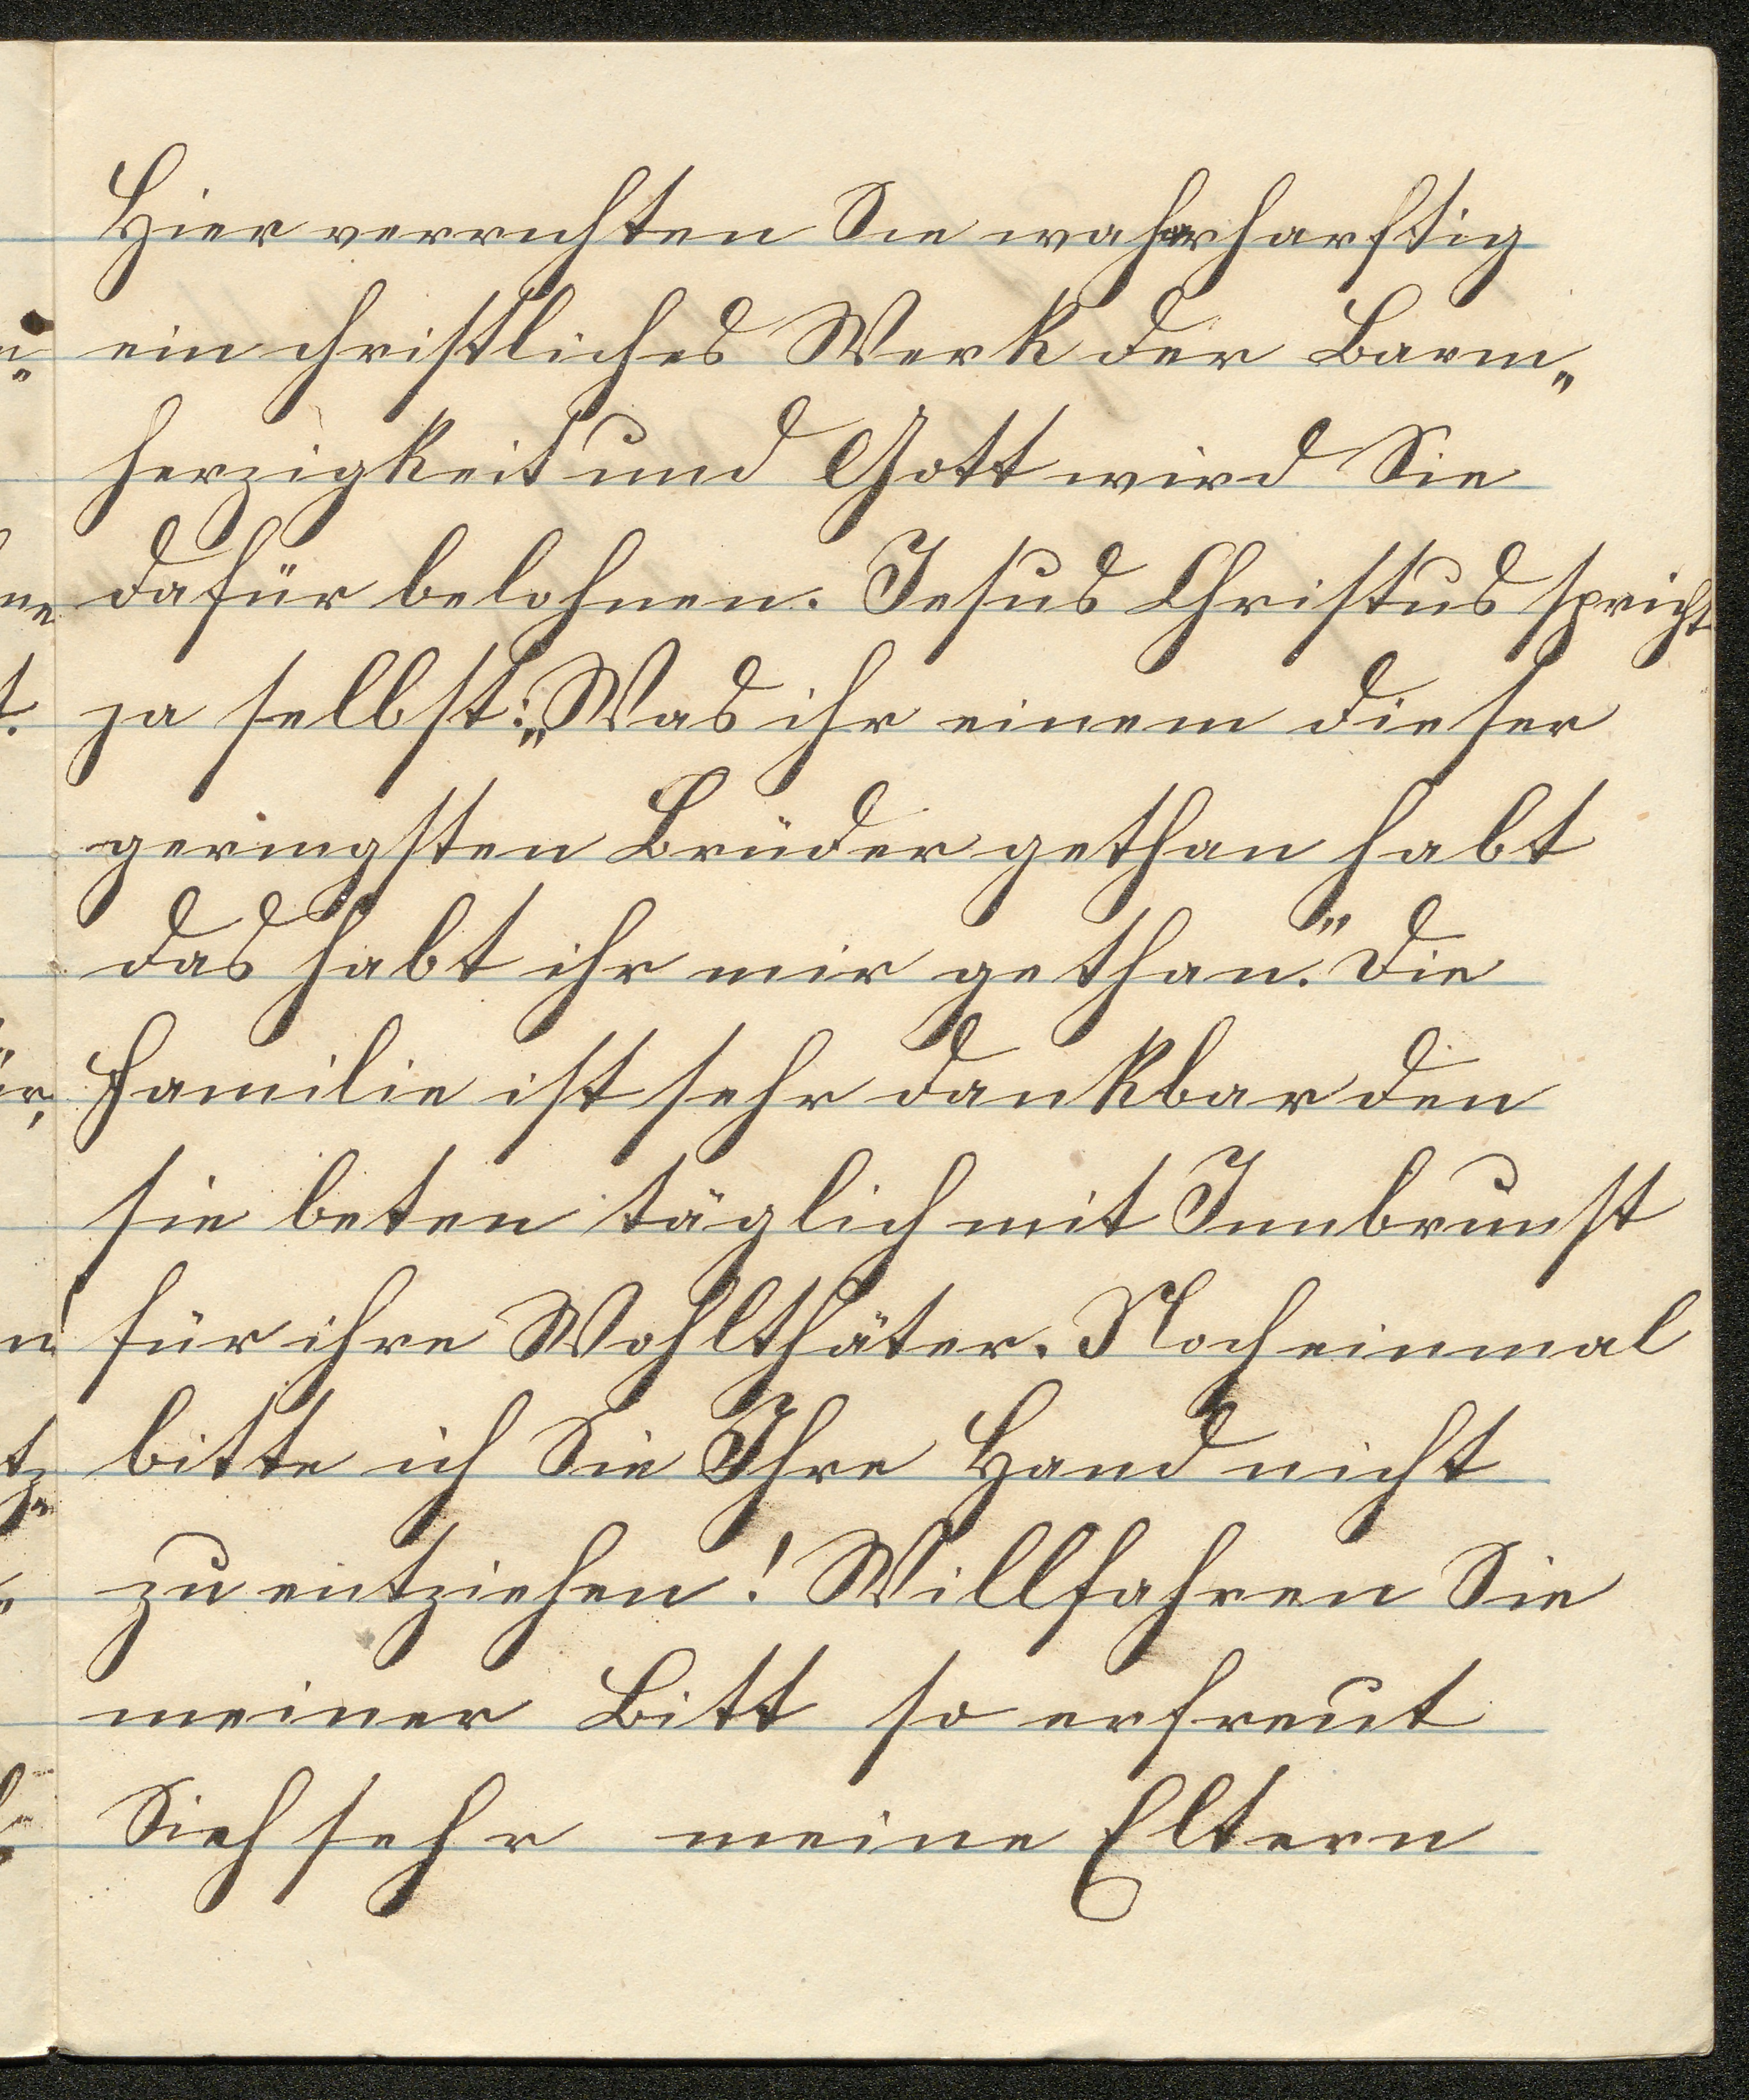 Hier verrichten Sie wahrharftig
ein christliches Werk der Barm„
herzigkeit und Gott wird Sie
dafür belohnen. Jesus Christus spricht
ja selbst: „Was ihr einem dieser
geringsten Brüder gethan habt
das habt ihr mir gethan.“ Die
Familie ist sehr dankbar den
sie beten täglich mit Innbrunst
für ihre Wohlthäter. Noch einmal
bitte ich Sie Ihre Hand nicht
zu entziehen! Willfahren Sie
meiner Bitt so erfreut
Sich sehr meine Eltern